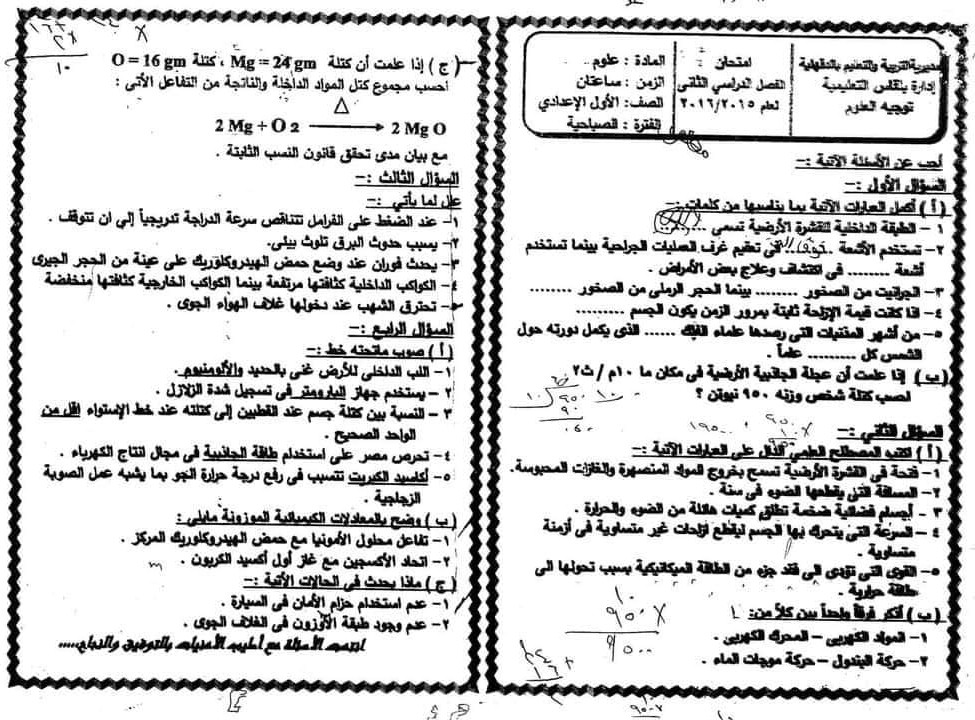 مديرية التربية والتعليم بالدقهلية
إدارة بلقاس التعليمية
توجيه العلوم
امتحان
الفصل الدراسي الثانى
لعام ٢٠١٥/٢٠١٦
المادة : علوم
الزمن : ساعتان
الصف: الأول الإعدادي
الفترة : الصباحية
أجب عن الأسئلة الآتية :-
السؤال الأول :-
( أ ) أكمل العبارات الآتية بما يناسبها من كلمات :-
١ - الطبقة الداخلية للقشرة الأرضية تسمى ........
٢- تستخدم الأشعة ........ فى تعقيم غرف العمليات الجراحية بينما تستخدم
أشعة ........ فى اكتشاف وعلاج بعض الأمراض .
٣- الجرانيت من الصخور ........ بينما الحجر الرملى من الصخور ........
٤- اذا كانت قيمة الإزاحة ثابتة بمرور الزمن يكون الجسم ........
٥- من أشهر المذنبات التى رصدها علماء الفلك ...... الذى يكمل دورته حول
الشمس كل ........ عاماً .
( ب ) إذا علمت أن عجلة الجاذبية الأرضية فى مكان ما ١٠م / ث٢
احسب كتلة شخص وزنه ٩٥٠ نيوتن ؟
السؤال الثانى :-
( أ ) اكتب المصطلح العلمى الدال على العبارات الآتية :-
١- فتحة فى القشرة الأرضية تسمح بخروج المواد المنصهرة والغازات المحبوسة.
٢- المسافة التى يقطعها الضوء فى سنة .
٣ - أجسام فضائية ضخمة تطلق كميات هائلة من الضوء والحرارة .
٤ - السرعة التى يتحرك بها الجسم ليقطع ازاحات غير متساوية فى أزمنة
متساوية .
٥- القوى التى تؤدى الى فقد جزء من الطاقة الميكانيكية بسبب تحولها الى
طاقة حرارية .
( ب ) أذكر فرقاً واحداً بين كلاً من:
١- المولد الكهربى – المحرك الكهربى .
٢- حركة البندول – حركة موجات الماء .
( ج ) إذا علمت أن كتلة Mg = 24 gm ، كتلة O = 16 gm
أحسب مجموع كتل المواد الداخلة والناتجة من التفاعل الأتى :
Δ
2 Mg + O 2 → 2 Mg O
مع بيان مدى تحقق قانون النسب الثابتة .
السؤال الثالث :-
علل لما يأتي :-
١- عند الضغط على الفرامل تتناقص سرعة الدراجة تدريجياً إلى ان تتوقف .
٢- يسبب حدوث البرق تلوث بيئى.
٣- يحدث فوران عند وضع حمض الهيدروكلوريك على عينة من الحجر الجيرى
٤- الكواكب الداخلية كثافتها مرتفعة بينما الكواكب الخارجية كثافتها منخفضة
٥- تحترق الشهب عند دخولها غلاف الهواء الجوى .
السؤال الرابع :-
( أ ) صوب ماتحته خط :-
١- اللب الداخلى للأرض غنى بالحديد والألومنيوم.
٢ - يستخدم جهاز البارومتر فى تسجيل شدة الزلازل .
٣ - النسبة بين كتلة جسم عند القطبين إلى كتلته عند خط الإستواء اقل من
الواحد الصحيح .
٤- تحرص مصر على استخدام طاقة الجاذبية فى مجال انتاج الكهرباء .
٥- أكاسيد الكبريت تتسبب فى رفع درجة حرارة الجو بما يشبه عمل الصوبة
الزجاجية .
( ب ) وضح بالمعادلات الكيميائية الموزونة مايلى :
١- تفاعل محلول الأمونيا مع حمض الهيدروكلوريك المركز .
٢- اتحاد الأكسجين مع غاز أول أكسيد الكربون .
( ج ) ماذا يحدث فى الحالات الأتية :-
١- عدم استخدام حزام الأمان فى السيارة .
٢- عدم وجود طبقة الأوزون فى الغلاف الجوى .
انتهت الأسئلة مع أطيب الأمنيات بالتوفيق والنجاح.....